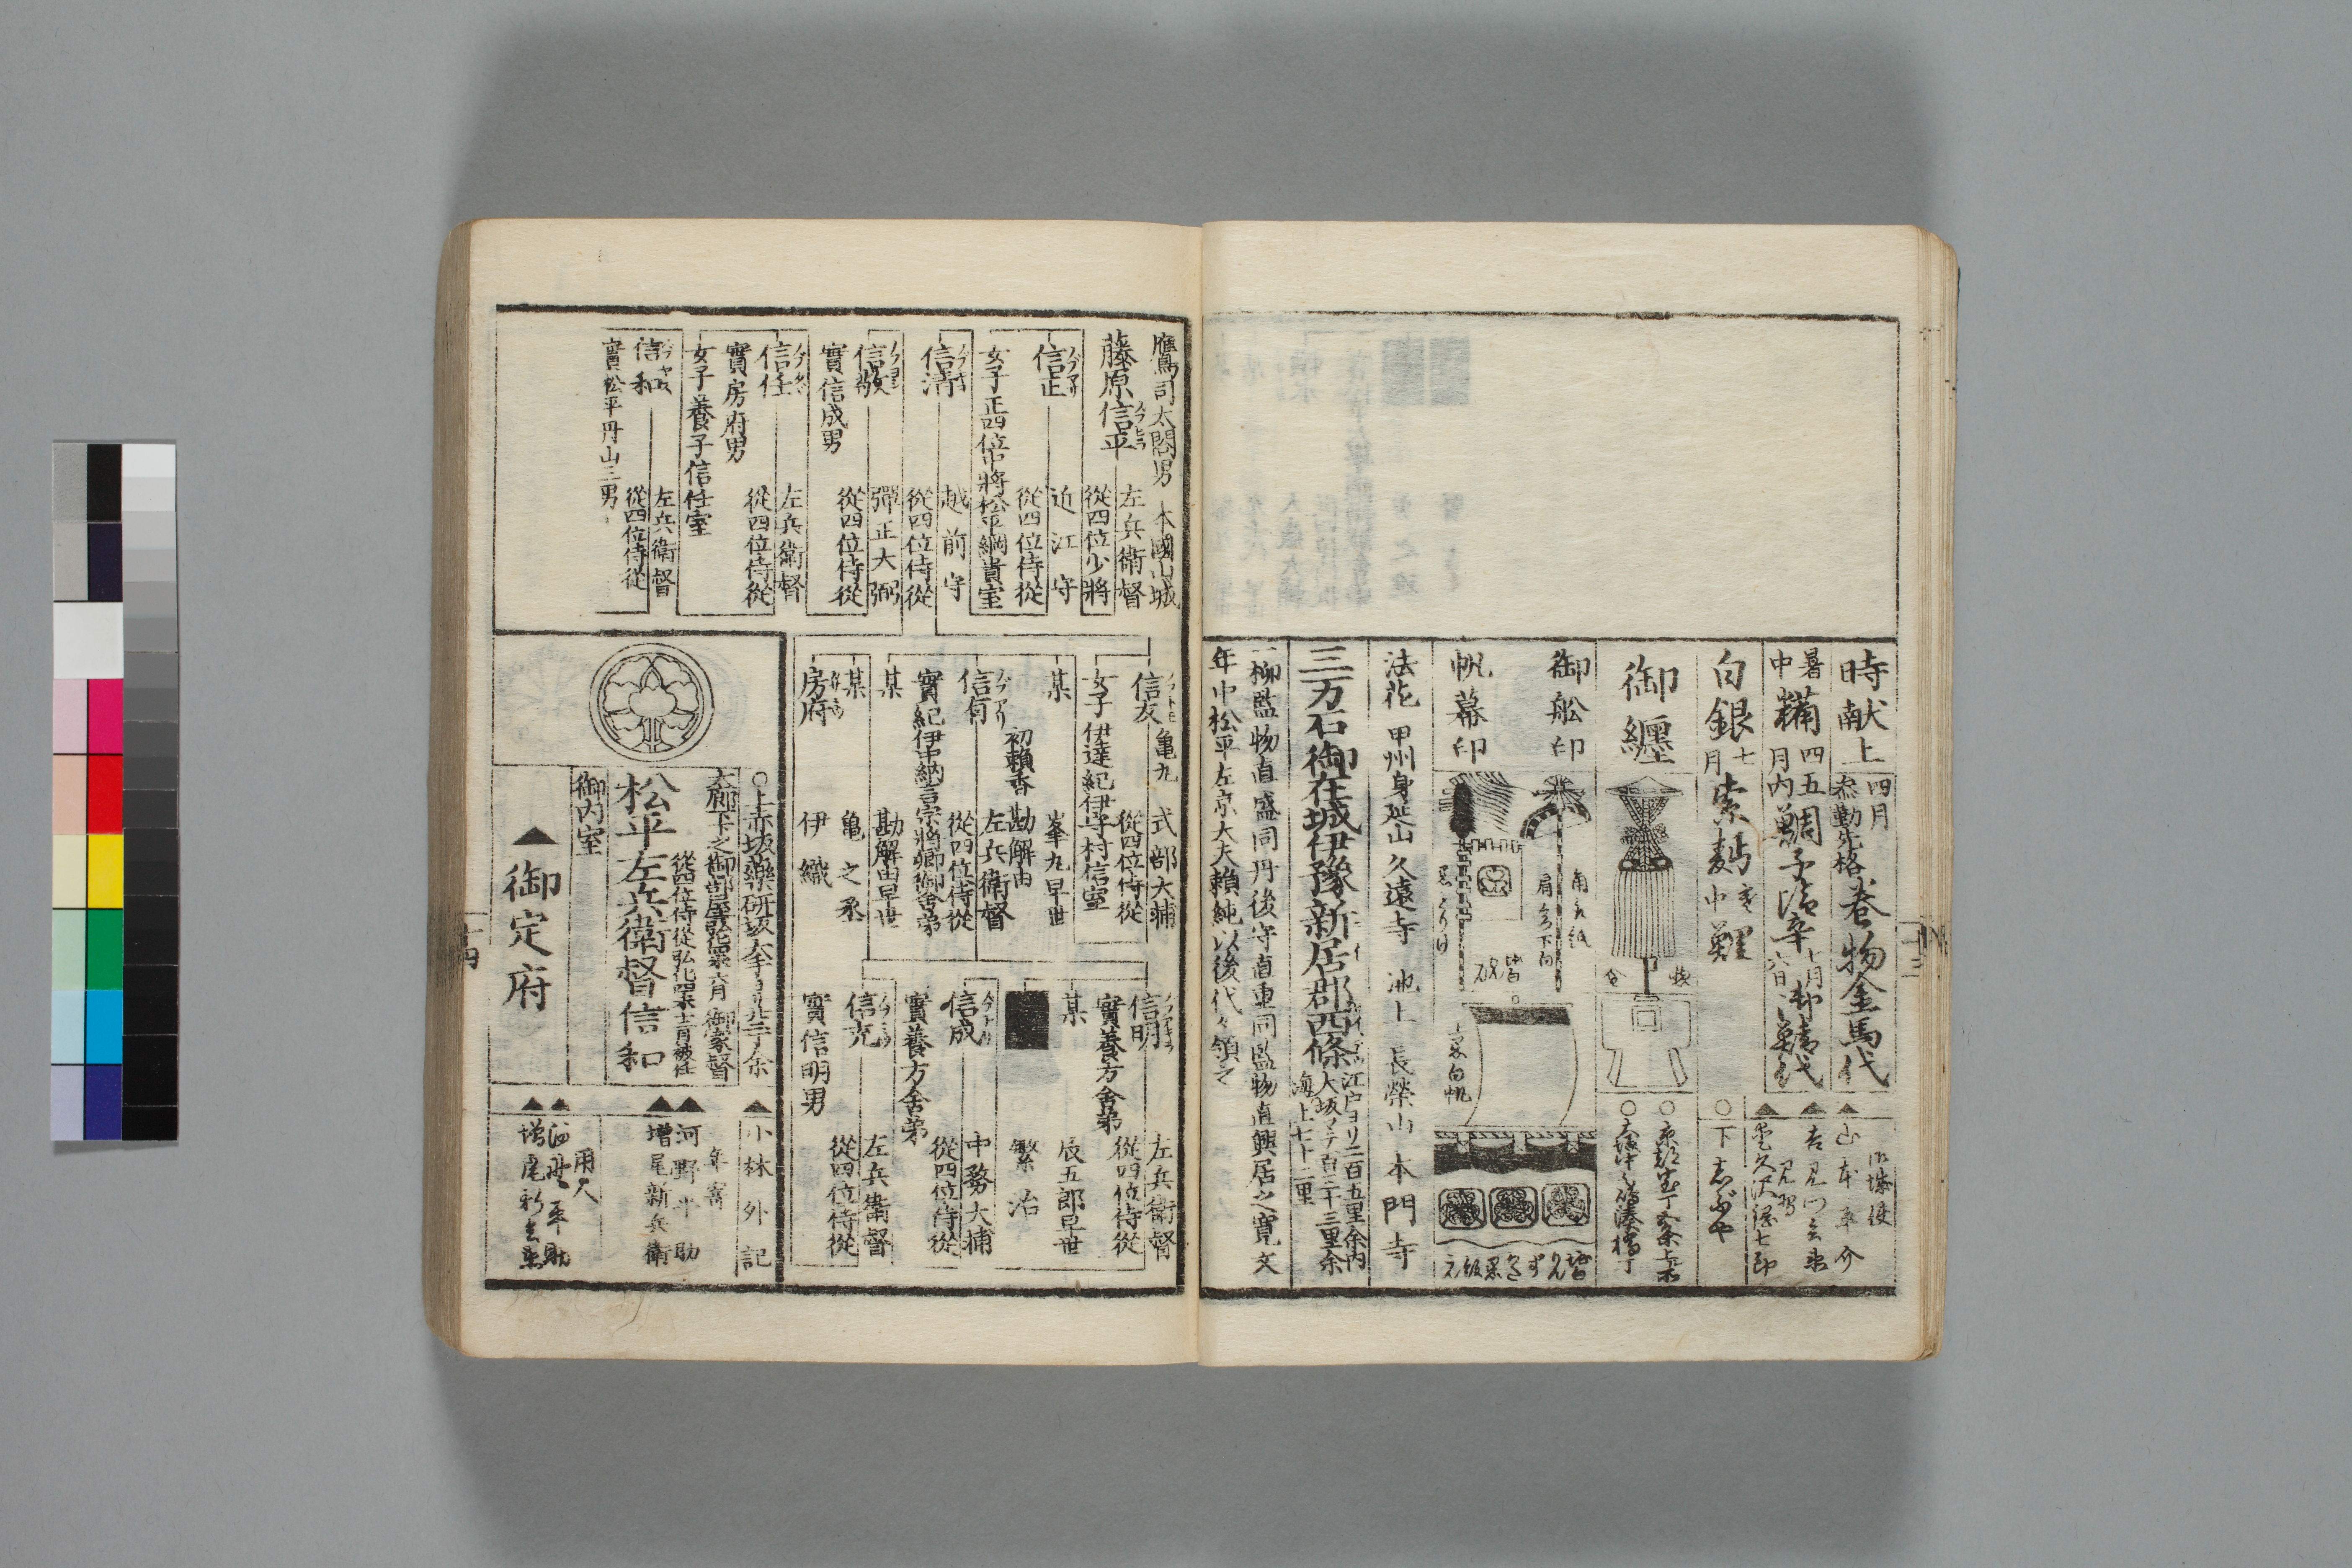 時献上
四月
参勤先格
巻物金馬代
暑中
糒
四五月内
鯛子塩辛
七月
六日
御鯖代
白銀
七月
索麪
寒中
鯉
山本卒介
下
御纏
御舩印
帆幕印
法花
甲州身延山久遠寺
池上
長榮山本門寺
三万石御在城伊豫新居郡西條
江戸ヨリ二百五里余内
大坂マテ百三十三里余
海上七十二里
一柳監物直盛同丹後守直重同監物直興居之寛文
年中松平左京大夫頼純以後代々領之
十三
鷹司太閤男
本國山城
藤原信平
左兵衛督
從四位少將
信正
近江守
從四位侍從
女子正四位中將松平綱貴室
信清
越前守
從四位侍從
信敬
彈正大弼
從四位侍從
實信成男
信任
左兵衛督
從四位侍從
實房府男
女子養子信任室
信和
左兵衛督
從四位侍從
實松平丹山三男
信友
亀九
式部大輔
從四位侍從
女子
伊達紀伊守村信室
某
峯九早世
初頼香
勘解由
信有
左兵衛督
從四位侍從
實紀伊中納言宗將卿御舎弟
某
勘解由早世
某
亀之丞
房府
伊織
信明
左兵衛督
從四位侍從
實養方舎弟
某
辰五郎早世
繁治
信成
中務大輔
從四位侍從
實養方舎弟
信充
左兵衛督
從四位侍從
實信明男
○上赤坂藥研坂
大廊下之御部屋
六月御家督
松平左兵衛督信和
從四位侍從弘化四未十二月被任
御内室
御定府
小林外記
年寄
河野半助
増尾新兵衛
用人
増尾新兵衛
十四